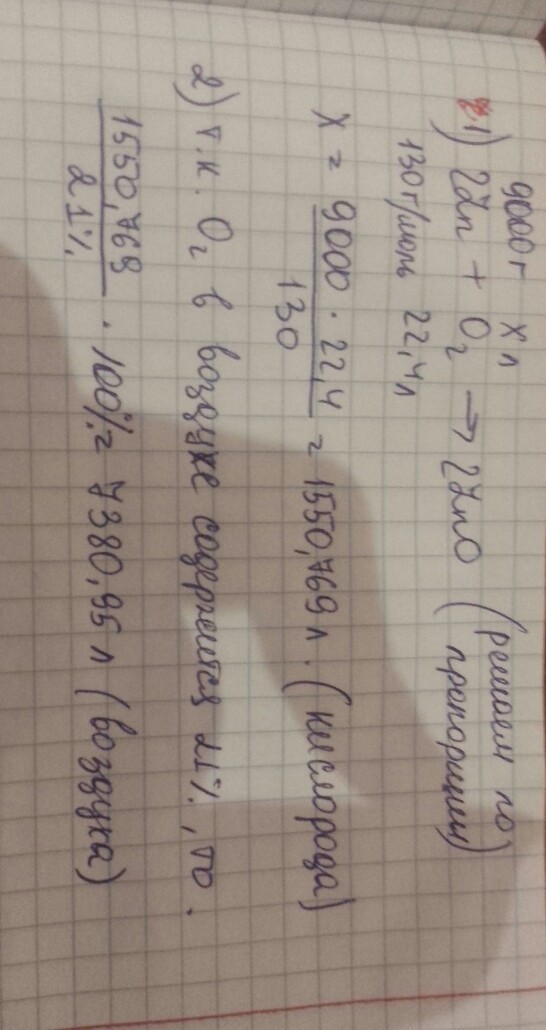 9000г х л (решаем по
2.1) 2Zn + O₂ → 2ZnO пропорции)
130г/моль 22,4л
X = 9000 · 22,4 / 130 = 1550,769 л. (кислорода)
2) т.к. O₂ в воздухе содержится 21%, то.
1550,769 / 21% · 100% = 7380,95 л (воздуха)